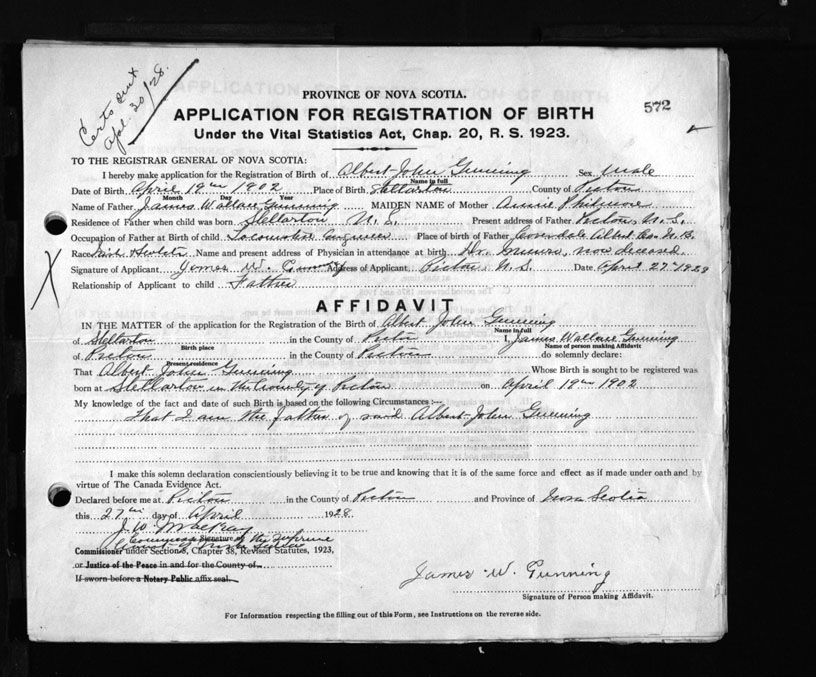 Certs sent
Apl. 30/28.
PROVINCE OF NOVA SCOTIA.
572
APPLICATION FOR REGISTRATION OF BIRTH
Under the Vital Statistics Act, Chap. 20, R. S. 1923.
TO THE REGISTRAR GENERAL OF NOVA SCOTIA:
I hereby make application for the Registration of Birth of Albert John Gunning Sex Male
Name in full
Date of Birth April 19th 1902 Place of Birth Stellarton County of Pictou
Month Day Year
Name of Father James Wallace Gunning MAIDEN NAME of Mother Annie
Residence of Father when child was born Stellarton N. S. Present address of Father Pictou, N. S.
Occupation of Father at Birth of child Locomotive Engineer Place of birth of Father Coverdale Albert Co. N. B.
Race Name and present address of Physician in attendance at birth Dr. now deceased
Signature of Applicant James W. Gunning Address of Applicant Pictou N. S. Date April 27th 1928
Relationship of Applicant to child Father
AFFIDAVIT
IN THE MATTER of the application for the Registration of the Birth of Albert John Gunning
Name in full
of Stellarton in the County of Pictou I, James Wallace Gunning
Birth place Name of person making Affidavit
of Pictou in the County of Pictou do solemnly declare:
Present residence
That Albert John Gunning Whose Birth is sought to be registered was
born at Stellarton in the County of Pictou on April 19th 1902
My knowledge of the fact and date of such Birth is based on the following Circumstances:—
That I am the father of said Albert John Gunning
I make this solemn declaration conscientiously believing it to be true and knowing that it is of the same force and effect as if made under oath and by
virtue of The Canada Evidence Act.
Declared before me at Pictou in the County of Pictou and Province of Nova Scotia
this 27th day of April 1928
J. W. MacKay
Signature
A Commissioner of the Supreme
Court of Nova Scotia
Commissioner under Section 8, Chapter 38, Revised Statutes, 1923,
or Justice of the Peace in and for the County of
If sworn before a Notary Public affix seal.
James W. Gunning
Signature of Person making Affidavit.
For Information respecting the filling out of this Form, see Instructions on the reverse side.